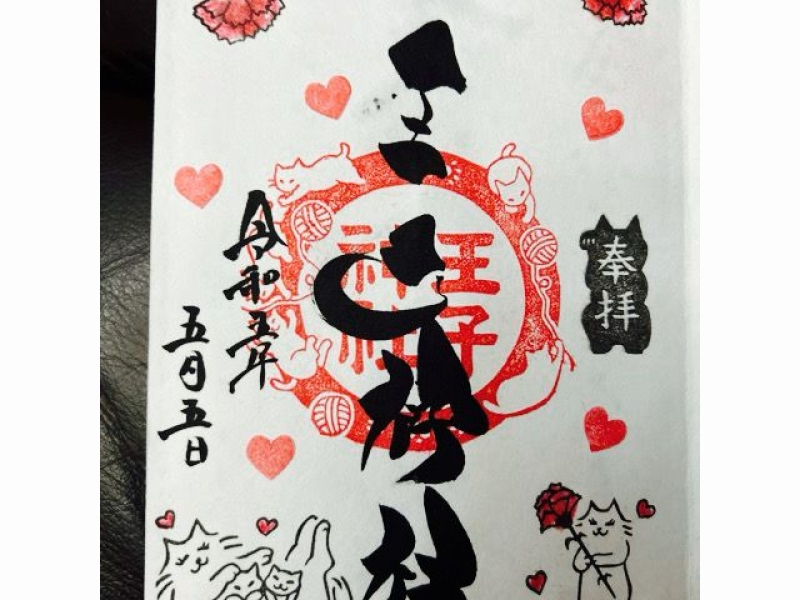 奉拝
王子神社
王子
神社
令和五年
五月五日